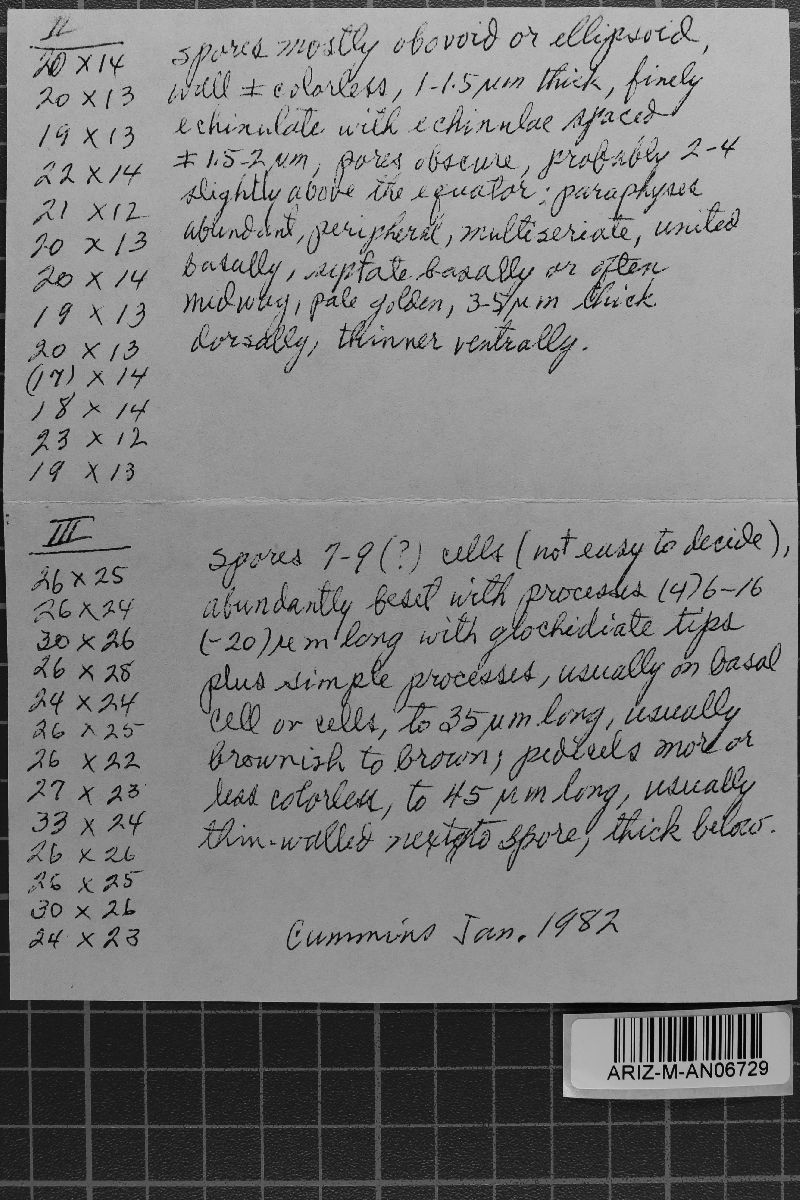 II
20 x 14
20 x 13
19 x 13
22 x 14
21 x 12
20 x 13
20 x 14
19 x 13
20 x 13
(17) x 14
18 x 14
23 x 12
19 x 13
Spores mostly obovoid or ellipsoid,
wall ± colorless, 1-1.5 µm thick, finely
echinulate with echinulae spaced
± 1.5-2 µm, pores obscure, probably 2-4
slightly above the equator; paraphyses
abundant, peripheral, multiseriate, united
basally, septate basally or often
midway, pale golden, 3-5 µm thick
dorsally, thinner ventrally.
III
26 x 25
26 x 24
30 x 26
26 x 28
24 x 24
26 x 25
26 x 22
27 x 23
33 x 24
26 x 26
26 x 25
30 x 26
24 x 23
Spores 7-9 (?) cells (not easy to decide),
abundantly beset with processes (4)6-16
(-20) µm long with glochidiate tips
plus simple processes, usually on basal
cell or cells, to 35 µm long, usually
brownish to brown; pedicels more or
less colorless, to 45 µm long, usually
thin-walled next to spore, thick below.
Cummins Jan. 1982
ARIZ-M-AN06729